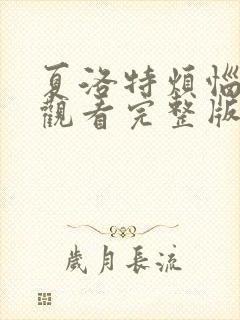 夏洛特煩惱
觀看完整版
歲月長流